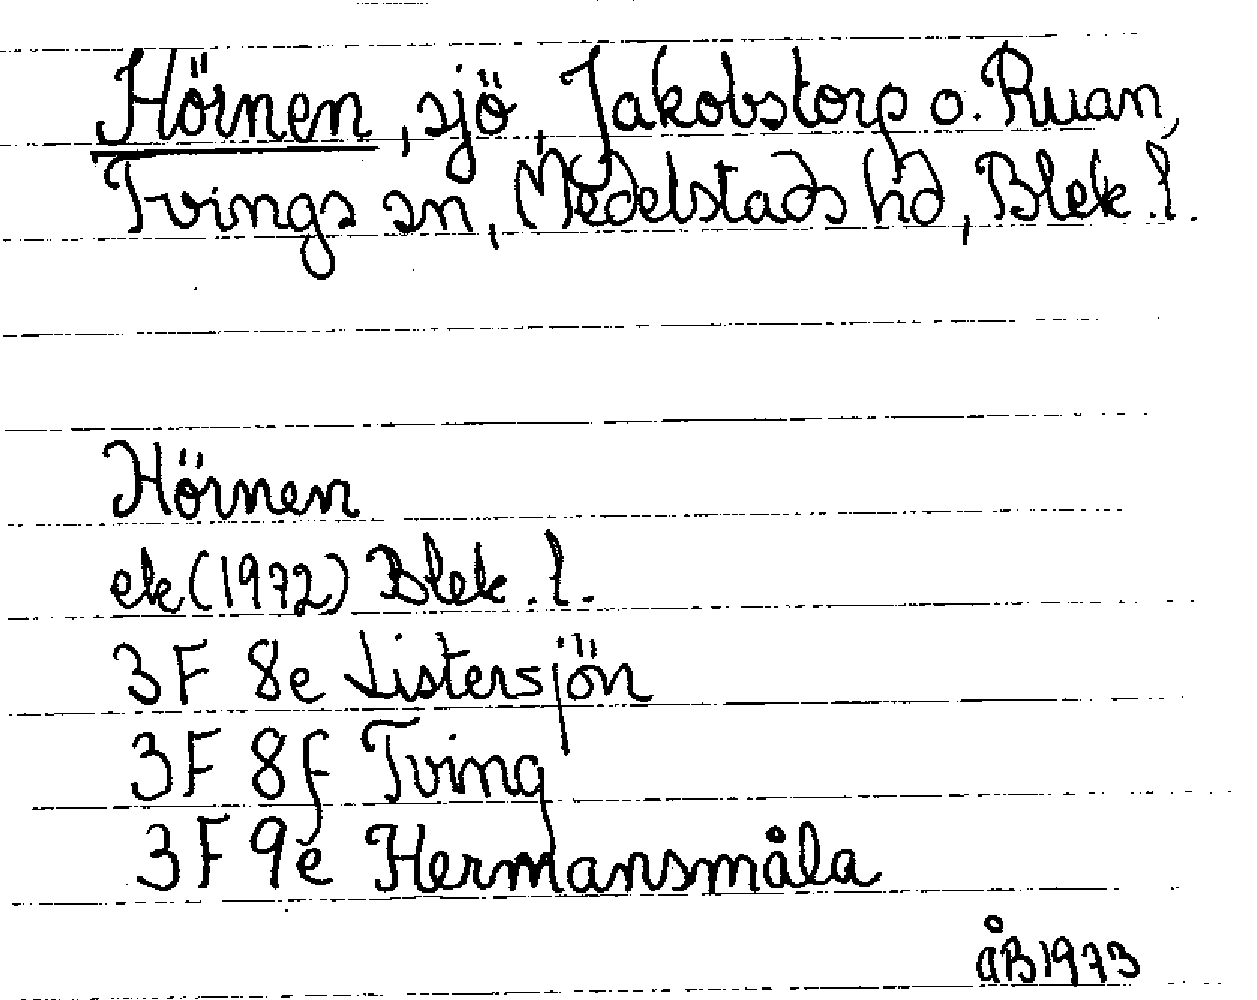 Hörnen, sjö, Jakobstorp o. Ruan,
Tvings sn, Medelstads hd, Blek. l.
Hörnen
ek (1972) Blek. l.
3F 8e Listersjön
3F 8f Tving
3F 9e Hermansmåla
åB 1973